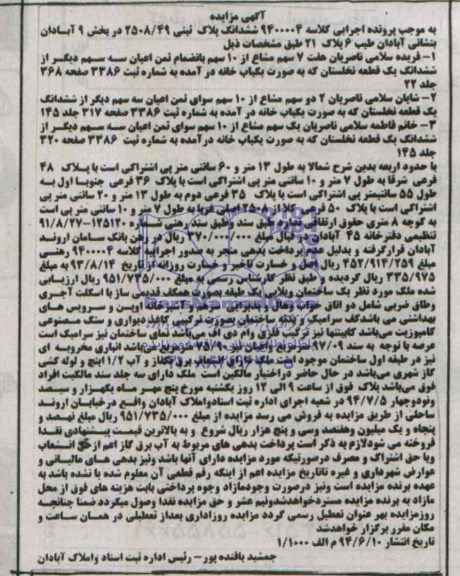 آگهی مزایده
به موجب پرونده اجرایی کلاسه ۹۴۰۰۰۰۴ ششدانگ پلاک ثبتی ۲۵۰۸/۴۹ در بخش ۹ آبادان
بنشانی آبادان طیب ۶ پلاک ۲۱ طبق مشخصات ذیل
۱- فریده سلامی ناصریان هفت ۷ سهم مشاع از ۱۰ سهم بانضمام ثمن اعیان سه سهم دیگر از
ششدانگ یک قطعه نخلستان که به صورت یکباب خانه در آمده به شماره ثبت ۳۳۸۶ صفحه ۳۶۸
جلد ۲۲
۲- شایان سلامی ناصریان ۲ دو سهم مشاع از ۱۰ سهم سوای ثمن اعیان سه سهم دیگر از ششدانگ
یک قطعه نخلستان که به صورت یکباب خانه در آمده به شماره ثبت ۳۳۸۶ صفحه ۳۱۷ جلد ۱۴۵
۳- خانم فاطمه سلامی ناصریان یک سهم مشاع از ۱۰ سهم سوای ثمن اعیان سه سهم دیگر از
ششدانگ یک قطعه نخلستان که به صورت یکباب خانه در آمده به شماره ثبت ۳۳۸۶ صفحه ۳۲۰
جلد ۱۴۵
با حدود اربعه بدین شرح شمالا به طول ۱۳ متر و ۶۰ سانتی متر پی اشتراکی است با پلاک ۴۸
فرعی شرقا به طول ۷ متر و ۱۰ سانتی متر پی اشتراکی است با پلاک ۳۶ فرعی جنوبا اول به
طول ۵۵ سانتیمتر پی اشتراکی است با پلاک ۳۵ فرعی دوم به طول ۱۳ متر و ۲۰ سانتی متر پی
اشتراکی است با پلاک ۵۰ فرعی کلا از ۲۵۰۸ اصلی غربا به طول ۷ متر و ۱۰ سانتی متر پی است
به کوچه ۸ متری حقوق ارتفاقی ندارد طبق سند وطبق سند رهنی شماره ۱۲۵۱۲۰-۹۱/۸/۲۷
تنظیمی دفترخانه ۴۵ آبادان در قبال مبلغ ریال در رهن بانک سامان اروند
آبادان قرارگرفته و بدلیل عدم پرداخت بدهی منجر به صدور اجراییه کلاسه ۹۴۰۰۰۰۴ رهنی
مبلغ ۴۵۲/۹۱۲/۲۵۹ ریال اصل و خسارت تاخیر و خسارت روزانه از تاریخ ۹۳/۸/۱۳ به مبلغ
۳۳۵/۹۷۵ ریال گردیده و طبق نظر کارشناس رسمی به مبلغ ۹۵۱/۷۳۵/۰۰۰ ریال ارزیابی
شده ملک مورد نظر یک ساختمان ویلایی یک طبقه بصورت همکف قدیمی ساز با اسکلت آجری
وطاق ضربی شامل دو اتاق خواب وهال وپذیرایی سرهم و آشپزخانه اوپن و سرویس های
بهداشتی می باشدکف سرامیک و بدنه ساختمان بصورت ترکیبی کاغذ دیواری و سنگ مصنوعی
کامپوزیت می‌باشد کابینتها نیز ترکیب فلزی وام دی اف می باشد نمای ساختمان نیز سرامیک است
عرصه با توجه به سند ۹۷/۰۹ مترمربع واعیان ۷۵/۹۰ مترمربع می‌باشد انباری مخروبه ای
نیز در طبقه اول ساختمان موجود است ملک دارای انشعاب برق تکفاز و آب ۱/۲ اینچ و لوله کشی
گاز شهری می‌باشد در حال حاضر دراختیار مالکین است ملک دارای سه جلد سند مالکیت افراد
فوق می‌باشد پلاک فوق از ساعت ۹ الی ۱۲ روز یکشنبه مورخ پنج مهر ماه یکهزار و سیصد
ونودوچهار ۹۴/۷/۵ در شعبه اجرای اداره ثبت اسنادواملاک آبادان واقع درخیابان اروند
ساحلی از طریق مزایده به فروش می رسد مزایده از مبلغ ۹۵۱/۷۳۵/۰۰۰ ریال مبلغ نهصد و
پنجاه و یک میلیون وهفتصد وسی و پنج هزار ریال شروع و به بالاترین قیمت پیشنهادی نقدا
فروخته می شودلازم به ذکر است پرداخت بدهی های مربوط به آب برق گاز اعم از حق انشعاب
ویا حق اشتراک و مصرف درصورتیکه مورد مزایده دارای آنها باشد ونیز بدهی های مالیاتی و
عوارض شهرداری و غیره تاتاریخ مزایده اعم از اینکه رقم قطعی آن معلوم شده یا نشده باشد به
عهده برنده مزایده است ونیز درصورت وجودمازاد وجوه پرداختی بابت هزینه های فوق از محل
مازاد به برنده مزایده مستردخواهدشدونیم عشر و حق مزایده نقدا وصول میگردد ضمنا چنانچه
روزمزایده بهر عنوان تعطیل رسمی گردد مزایده روزاداری بعداز تعطیلی در همان ساعت و
مکان مقرر برگزار خواهدشد
تاریخ انتشار ۹۴/۶/۱۰ م الف ۱/۱۰۰۰
جمشید بافنده پور- رئیس اداره ثبت اسناد واملاک آبادان